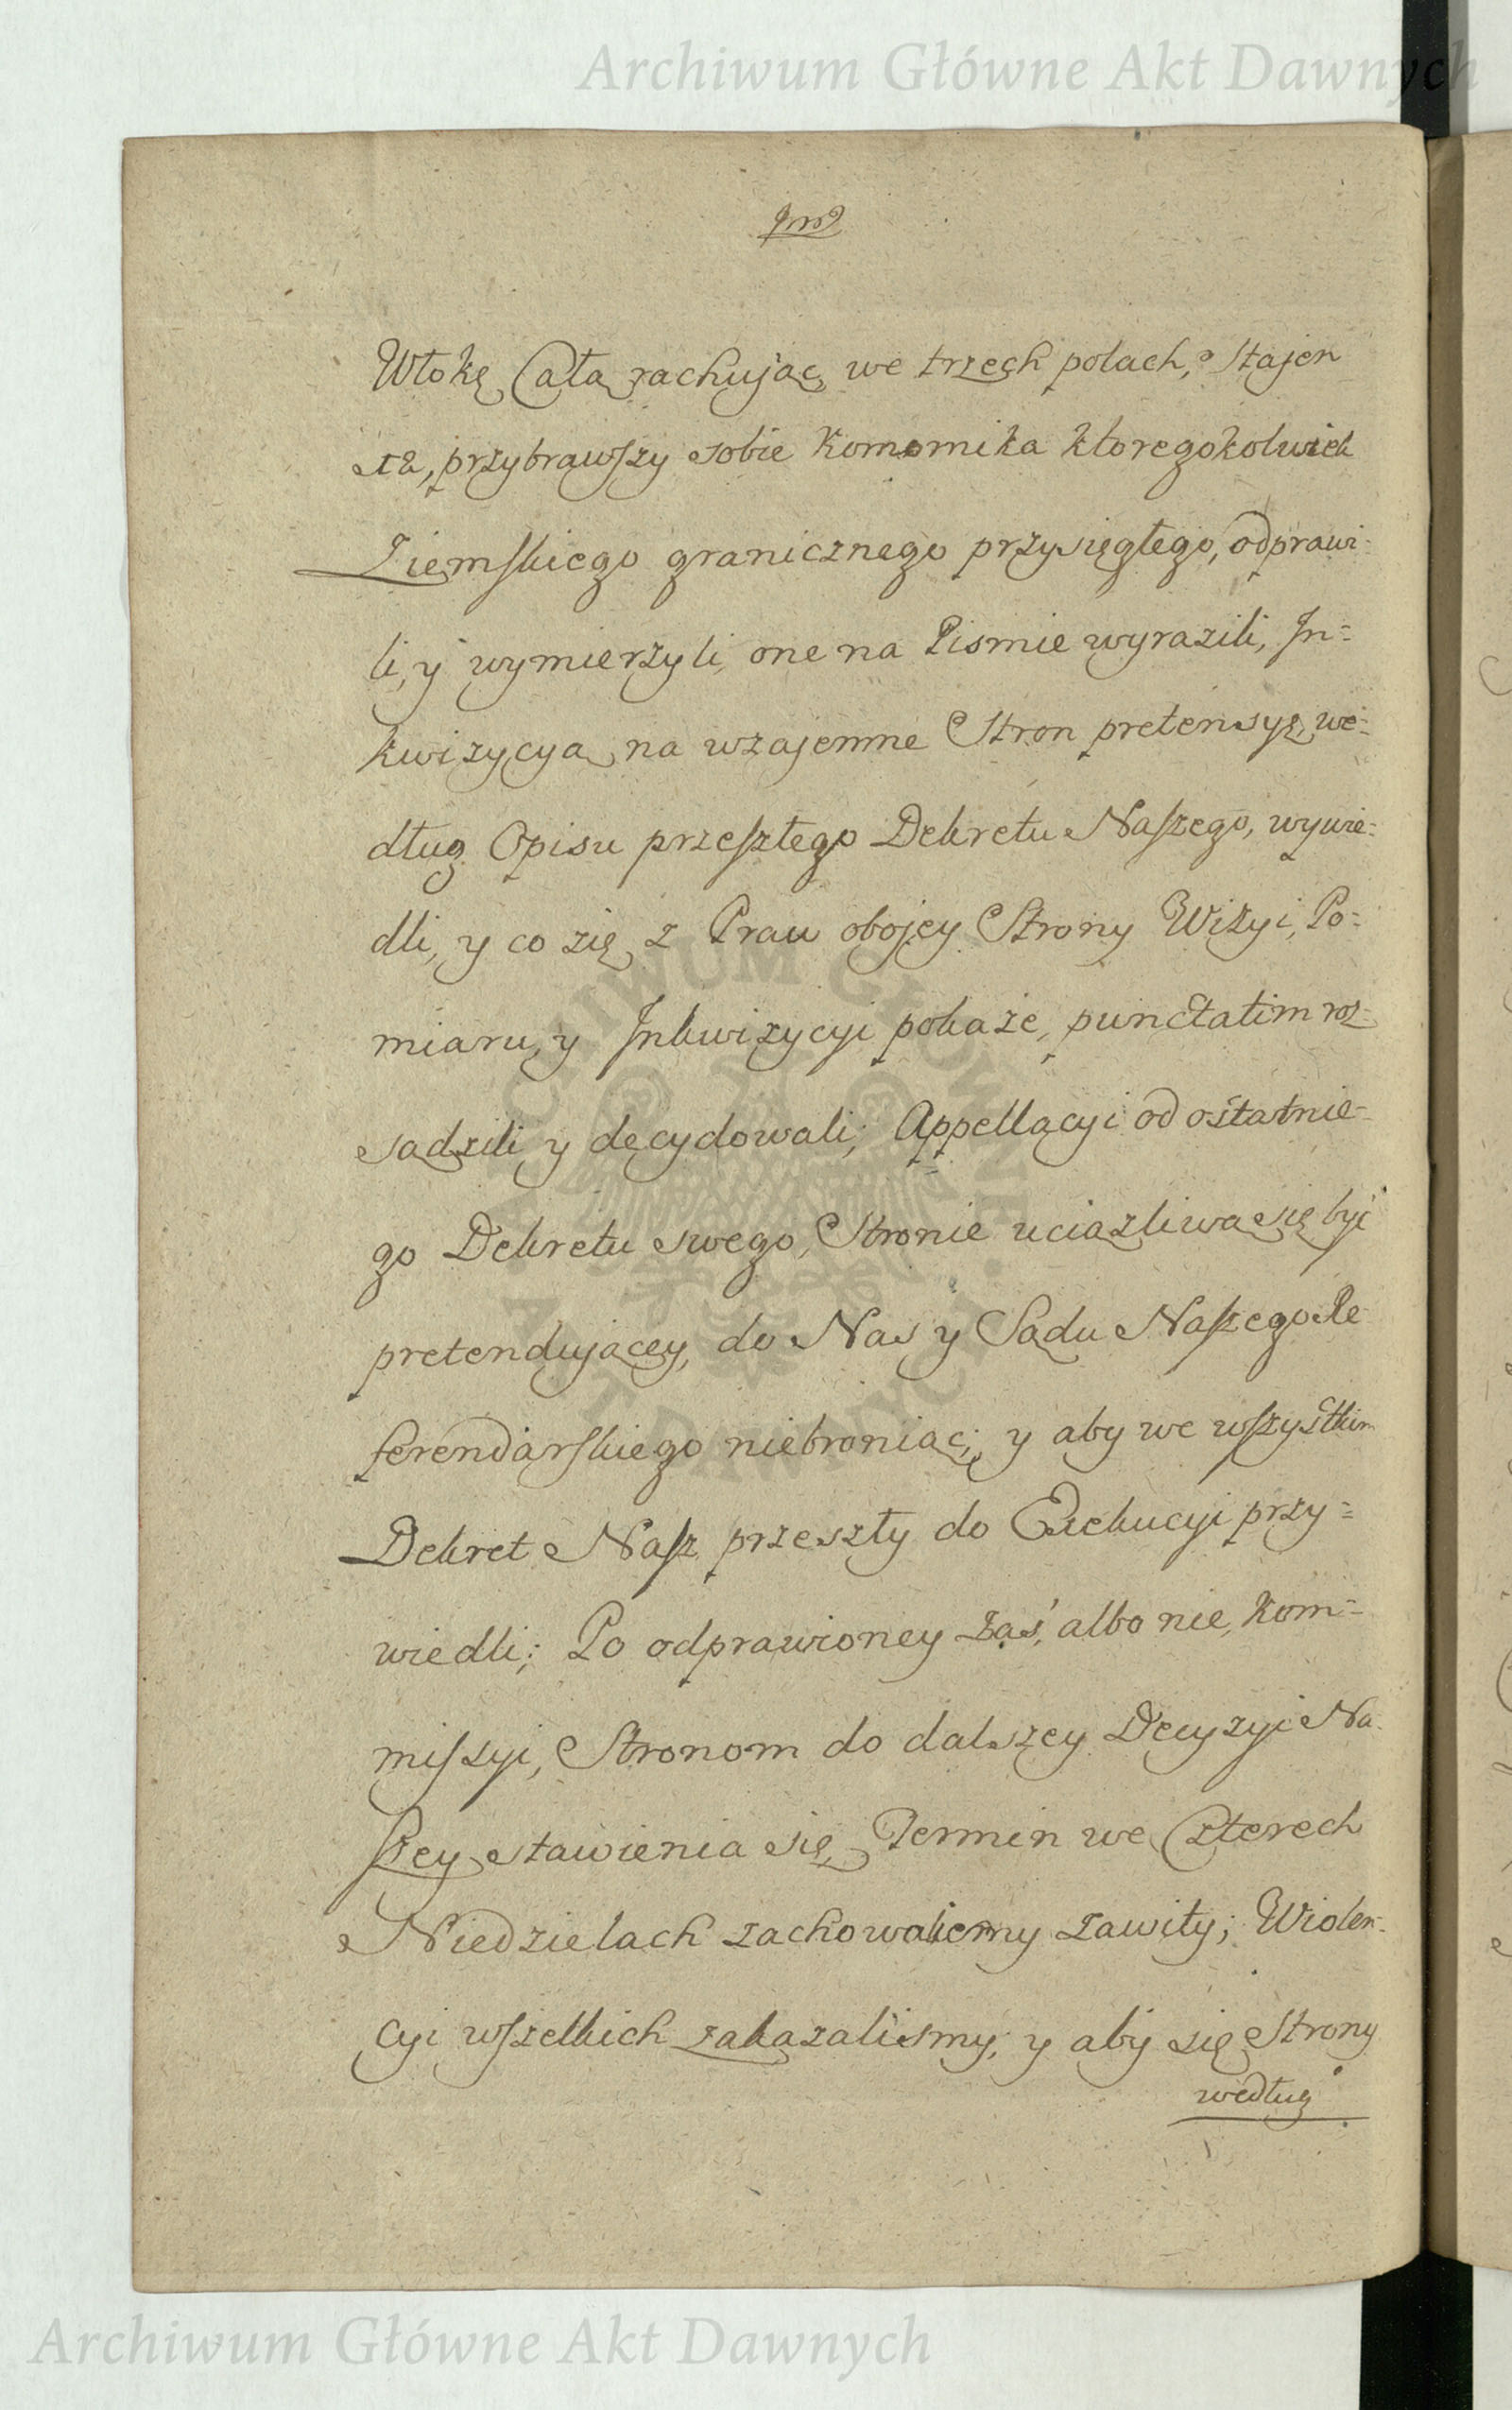 Archiwum Główne Akt Dawnych
Włokę Całą rachując we trzech polach, Stajen
12, przybrawszy sobie Komornika ktoregokolwiek
Ziemskiego granicznego przysięgłego, odprawi-
li, y wymierzyli, one na Pismie wyrazili, In-
kwizycyą na wzajemne Stron pretensye, we-
dług Opisu przeszłego Dekretu Naszego, wywie-
dli, y co się z Praw obojey Strony Wizyi, Po-
miaru, y Inkwizycyi pokaże, punctatim roz-
sądzili y decydowali; Appellacyi od ostatnie-
go Dekretu swego, Stronie uciążliwą się być
pretendującey, do Nas y Sądu Naszego Re
ferendarskiego niebroniąc; y aby we wszystkim
Dekret Nasz przeszły do Exekucyi przy-
wiedli; Po odprawioney zaś, albo nie, Kom-
missyi, Stronom do dalszey Decyzyi Na-
szey stawienia się, Termin we Czterech
Niedzielach zachowaliemy zawity; Wiolen-
cyi wszelkich zakazalismy, y aby się Strony
według
ARCHIWUM GŁÓWNE
AKT DAWNYCH
Archiwum Główne Akt Dawnych